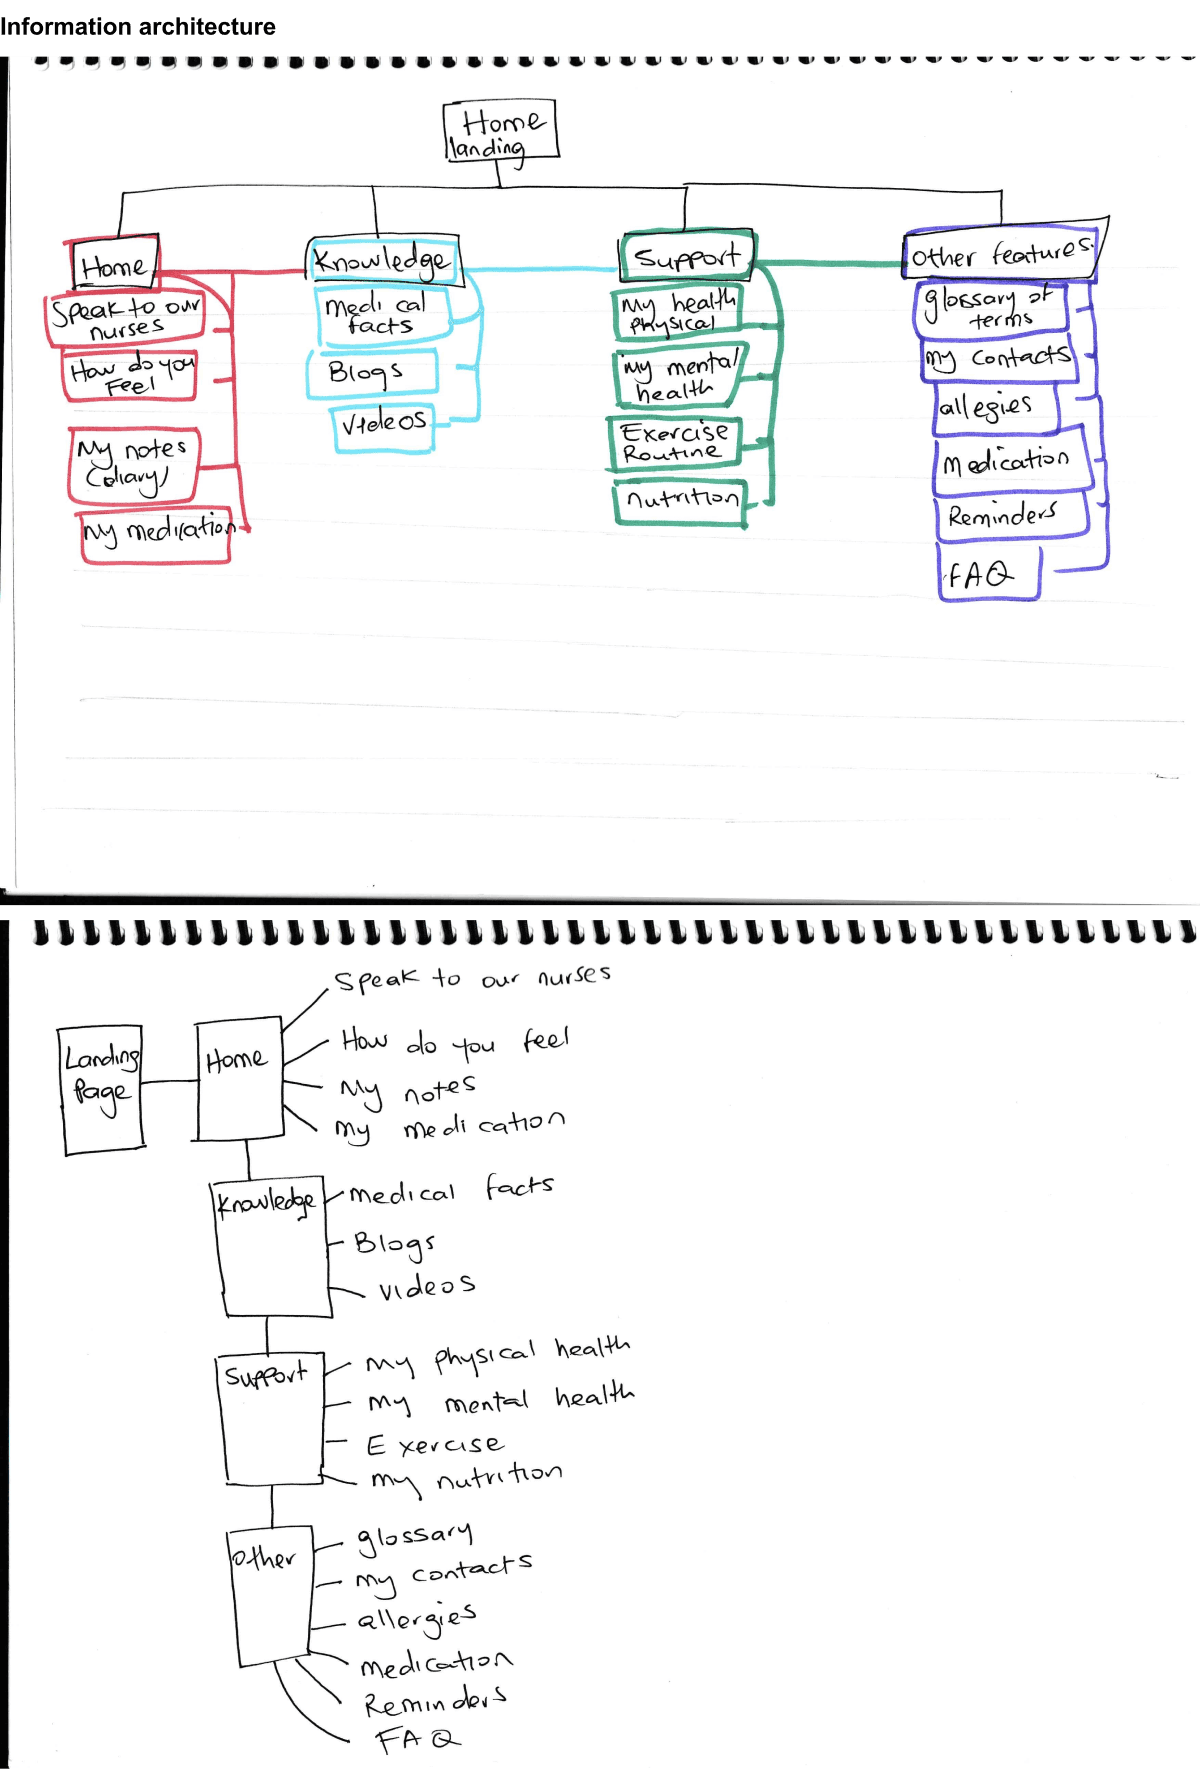 Information architecture
Home
landing
Home
Speak to our
nurses
How do you
Feel
My notes
(diary)
My medication
Knowledge
Medical
facts
Blogs
Videos
Support
My health
physical
my mental
health
Exercise
Routine
nutrition
other features
glossary of
terms
my contacts
allegies
Medication
Reminders
FAQ
Landing
Page
Home
Speak to our nurses
How do you feel
My notes
my medication
Knowledge
medical facts
Blogs
videos
Support
my physical health
my mental health
Exercise
my nutrition
other
glossary
my contacts
allergies
medication
Reminders
FAQ